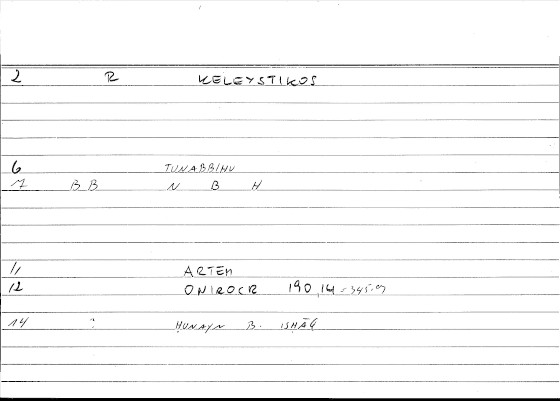 2 R KELEYSTIKOS
6 TUNABBIHU
7 BB N B H
11 ARTEM
12 ONIROCR 190,14 = 345.9
14 : ḤUNAYN B. ISḤĀQ